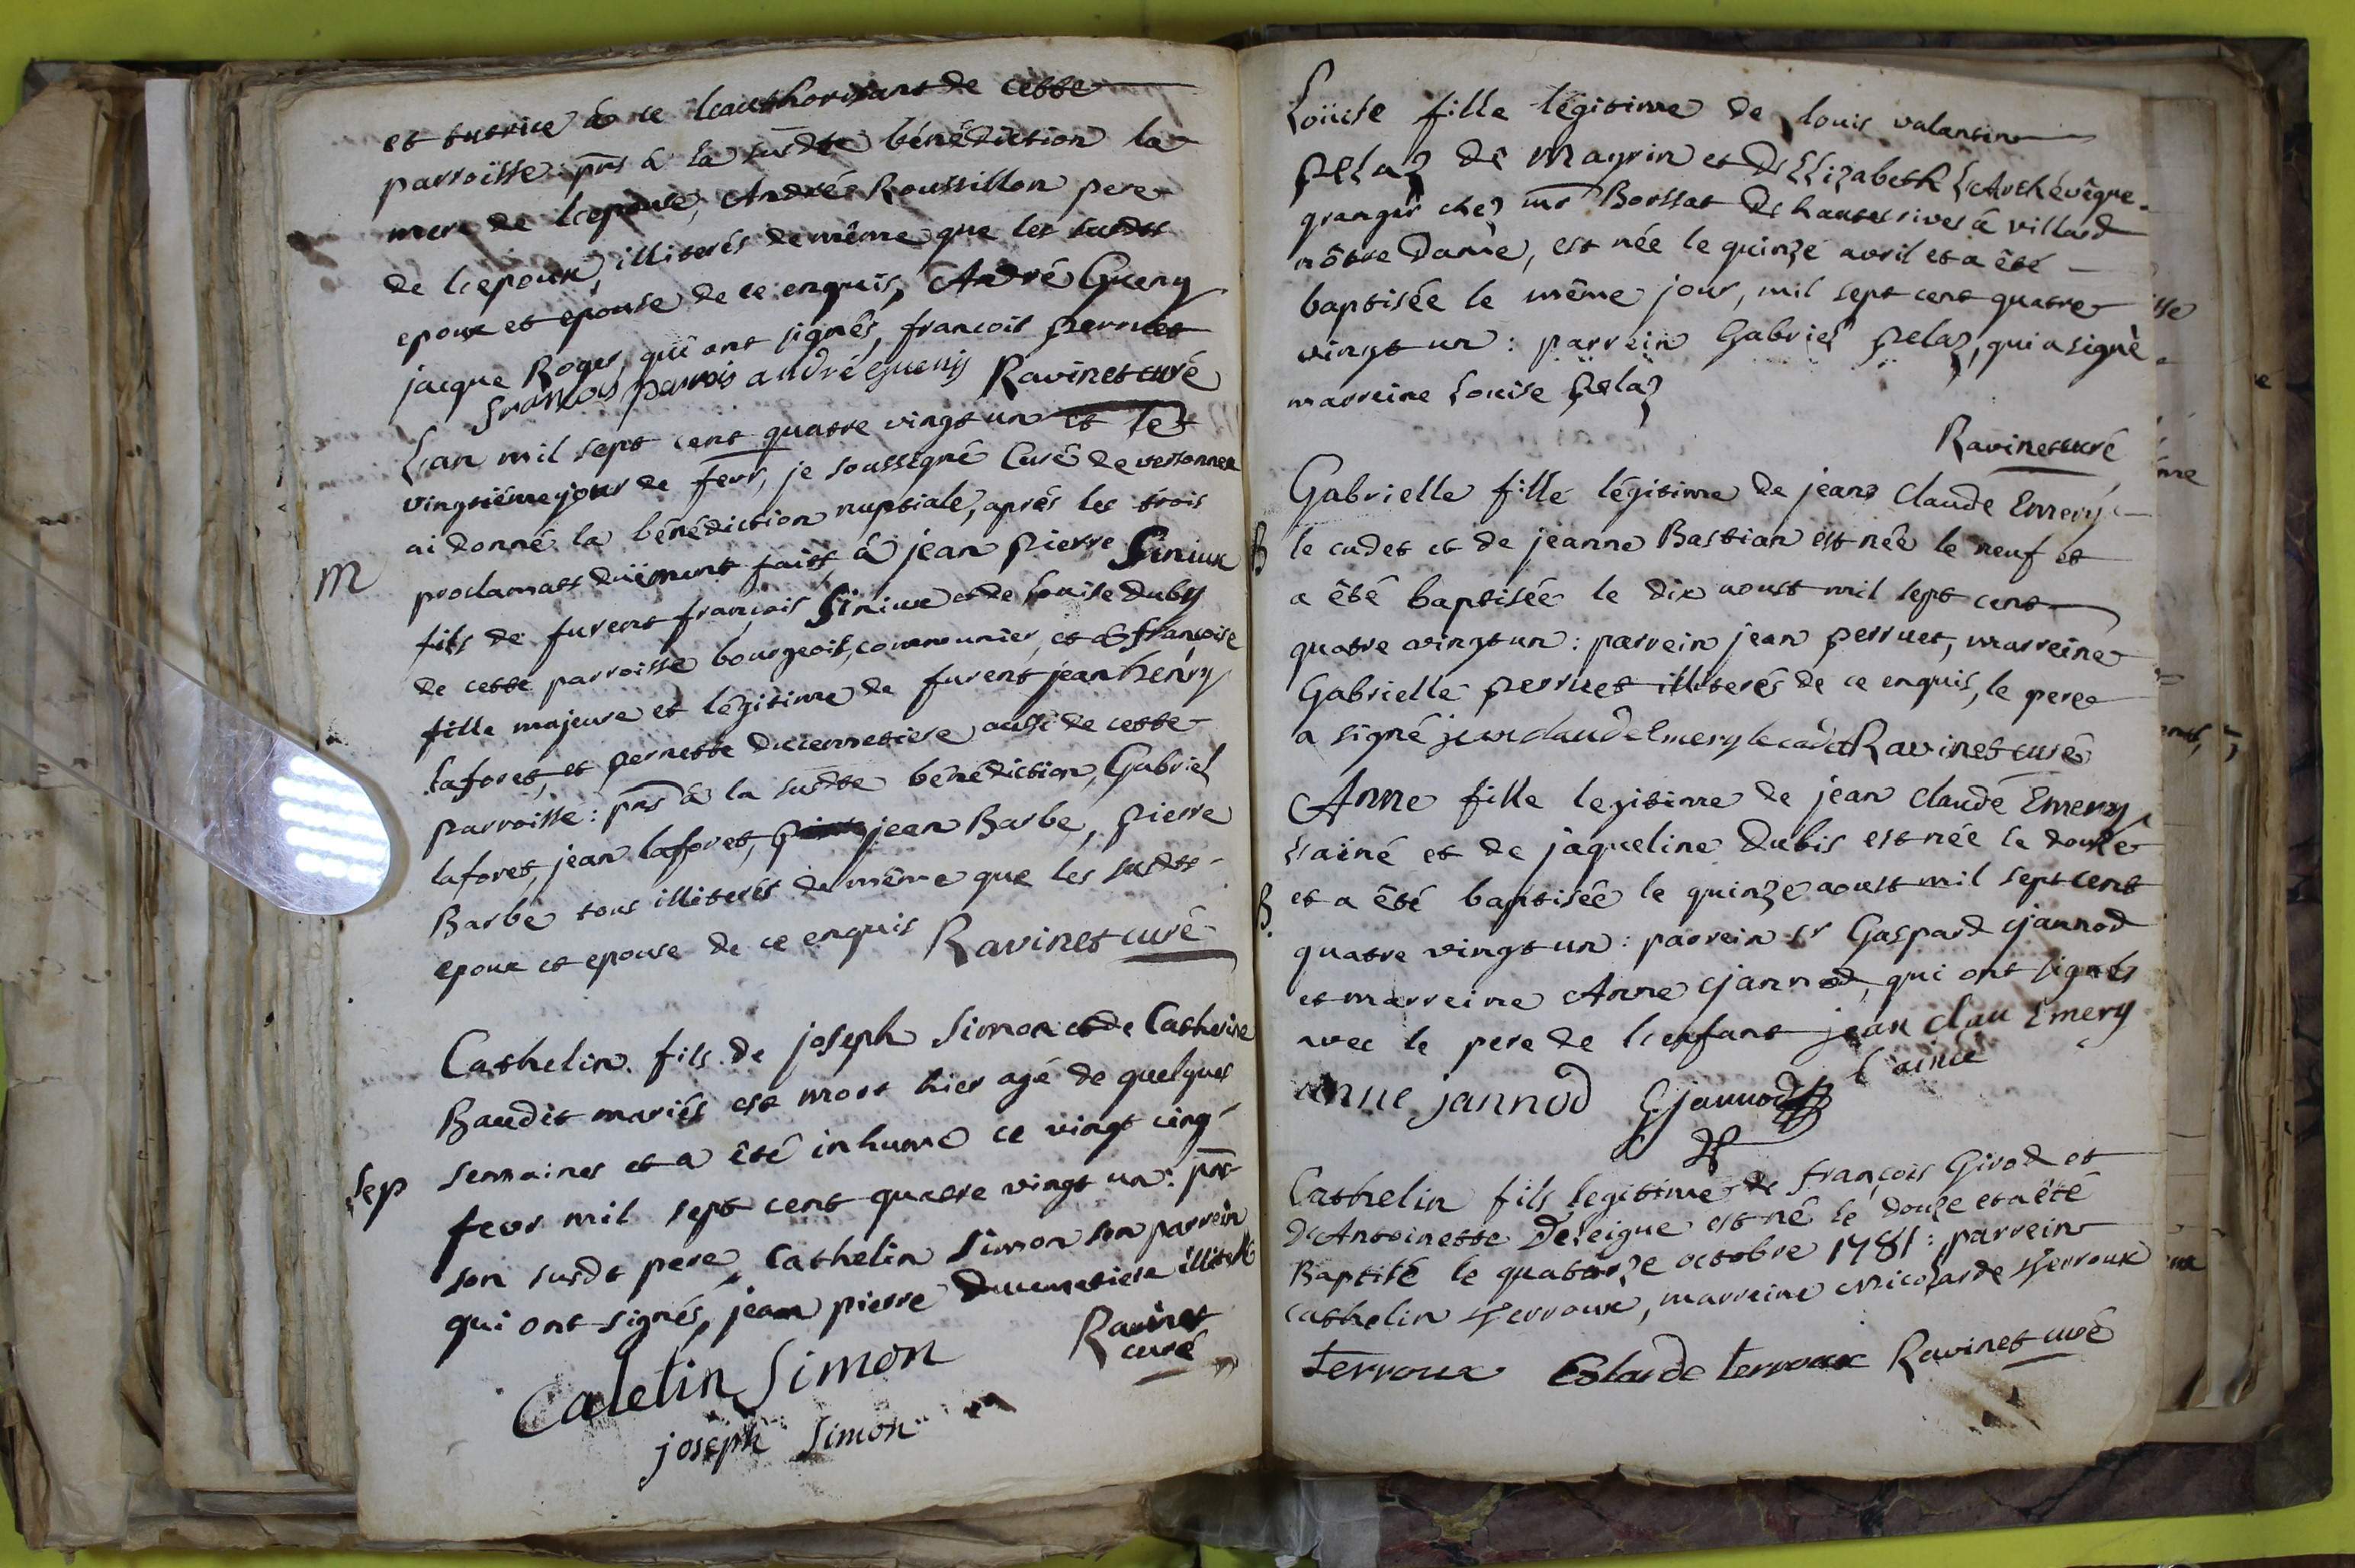 et tutrice à ce l'authorisant de cette
parroisse: pnts à la susdte bénédiction la
mere de l'epouse, André Roussillon pere
de l'epoux, illiterés de même que les susdts
epoux et epouse de ce enquis, André Gueny
jacque Roger, qui ont signés, francois perruet
francois parruis andré Gueny Ravinet curé
L'an mil sept cent quatre vingt un et le
vingtiéme jour de fevr, je soussigné Curé de versonnex
ai donné la bénédiction nuptiale, aprés les trois
M
proclamats duëment faits à jean pierre Siniux
fils de furent françois Siniux et de Louise duby
de cette parroisse bourgeois, communier, et de françoise
fille majeure et légitime de furent jean henry
laforet, et pernette ducemetiere aussi de cette
parroisse: pnts à la susdte bénédiction, Gabriel
laforet, jean laforet, jean Barbe, pierre
Barbe tous illiterés de même que les susdts
epoux et epouse de ce enquis Ravinet curé
Cathelin fils de joseph Simon et de Catherine
Baudit mariés est mort hier agé de quelques
Sep
semaines et a été inhumé ce vingt cinq
fevr mil sept cent quatre vingt un: pnts
son susdt pere, Cathelin Simon son parrein
qui ont signés, jean pierre ducemetiere illiteré
Ravinet
curé
Caletin Simon
joseph Simon
Loüise fille légitime de louis valantin
pelaz de Mayrin et d'Elizabeth L'Archévêque
granger chez mr Borssat de hauterives à villard
nôtre Dame, est née le quinze avril et a été
baptisée le même jour, mil sept cent quatre
vingt un: parrein Gabriel pelaz, qui a signé
marreine Louise pelaz
Ravinet curé
Gabrielle fille légitime de jean Claude Emery
B
le cadet et de jeanne Bastian est née le neuf et
a été baptisée le dix aoust mil sept cent
quatre vingt un: parrein jean perruet, marreine
Gabrielle perruet illiterés de ce enquis, le pere
a signé jean claude Emery le cadet Ravinet curé
Anne fille legitime de jean claude Emery
l'ainé et de jaqueline Dubis est née le douze
B.
et a été baptisée le quinze aoust mil sept cent
quatre vingt un: parrein sr Gaspard Gjannod
et marreine Anne Gjannod, qui ont signés
avec le pere de l'enfant jean clau Emery
l'ainée
anne jannod Gjannod
Cathelin fils legitime de françois Girod et
d'Antoinette Deleigue est né le douze et a été
Baptisé le quatorze octobre 1781: parrein
Cathelin Terroux, marreine Nicolarde Terroux
Terroux Colarde terroux Ravinet curé